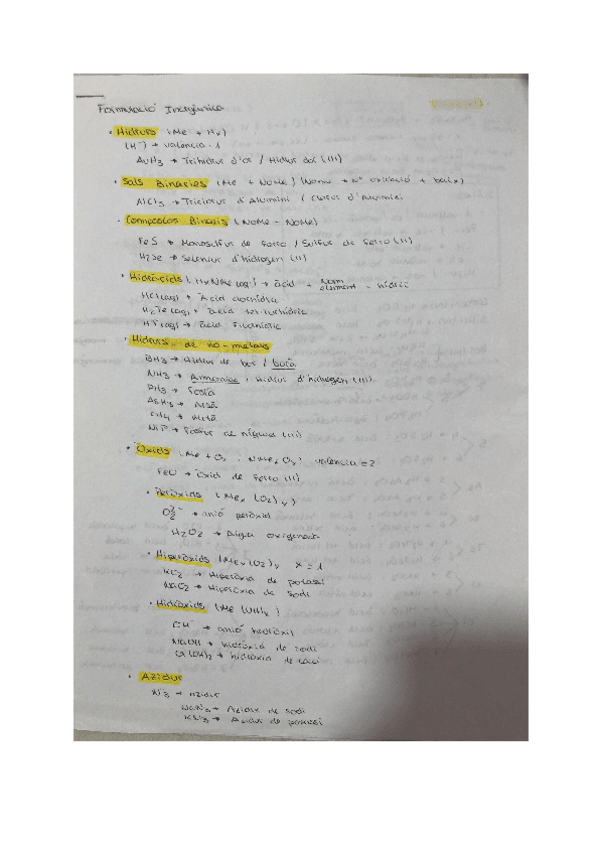 Formulació Inorgànica
• Hidrurs (Me + Hx)
(H⁻) → valència -1
AuH3 → Trihidrur d'or / Hidrur d'or (III)
• Sals Binàries (Me + NoMe) (Nomu → nº oxidació + baix)
AlCl3 → Triclorur d'Alumini / Clorur d'Alumini
• Compostos Binaris (NoMe - NoMe)
FeS → Monosulfur de ferro / Sulfur de ferro (II)
H2Se → Selenur d'hidrogen (II)
• Hidràcids (HxNMe (aq)) → àcid + nom element - hídric
HCl(aq) → Àcid clorhídric
H2Te(aq) → àcid tel·lurhídric
HF(aq) → àcid fluorhídric
• Hidrurs de no-metals
BH3 → Hidrur de bor / borà
NH3 → Amoníac, Hidrur d'hidrogen (III)
PH3 → Fosfà
AsH3 → Arsà
CH4 → Metà
NiP → Fosfur de níquel (III)
• Òxids (Me + Ox, NMexOy) valència = 2
FeO → Òxid de ferro (II)
• Peròxids (Mex (O2)y)
O2²⁻ → anió peròxid
H2O2 → Aigua oxigenada
• Hiperòxids (Mex(O2)y x = 1
KO2 → Hiperòxid de potassi
NaO2 → Hiperòxid de sodi
• Hidròxids (Me (OH)x)
OH⁻ → anió hidròxil
NaOH → hidròxid de sodi
Ca(OH)2 → hidròxid de calci
• Azidur
N3⁻ → azidur
NaN3 → Azidur de sodi
KN3 → Azidur de potassi